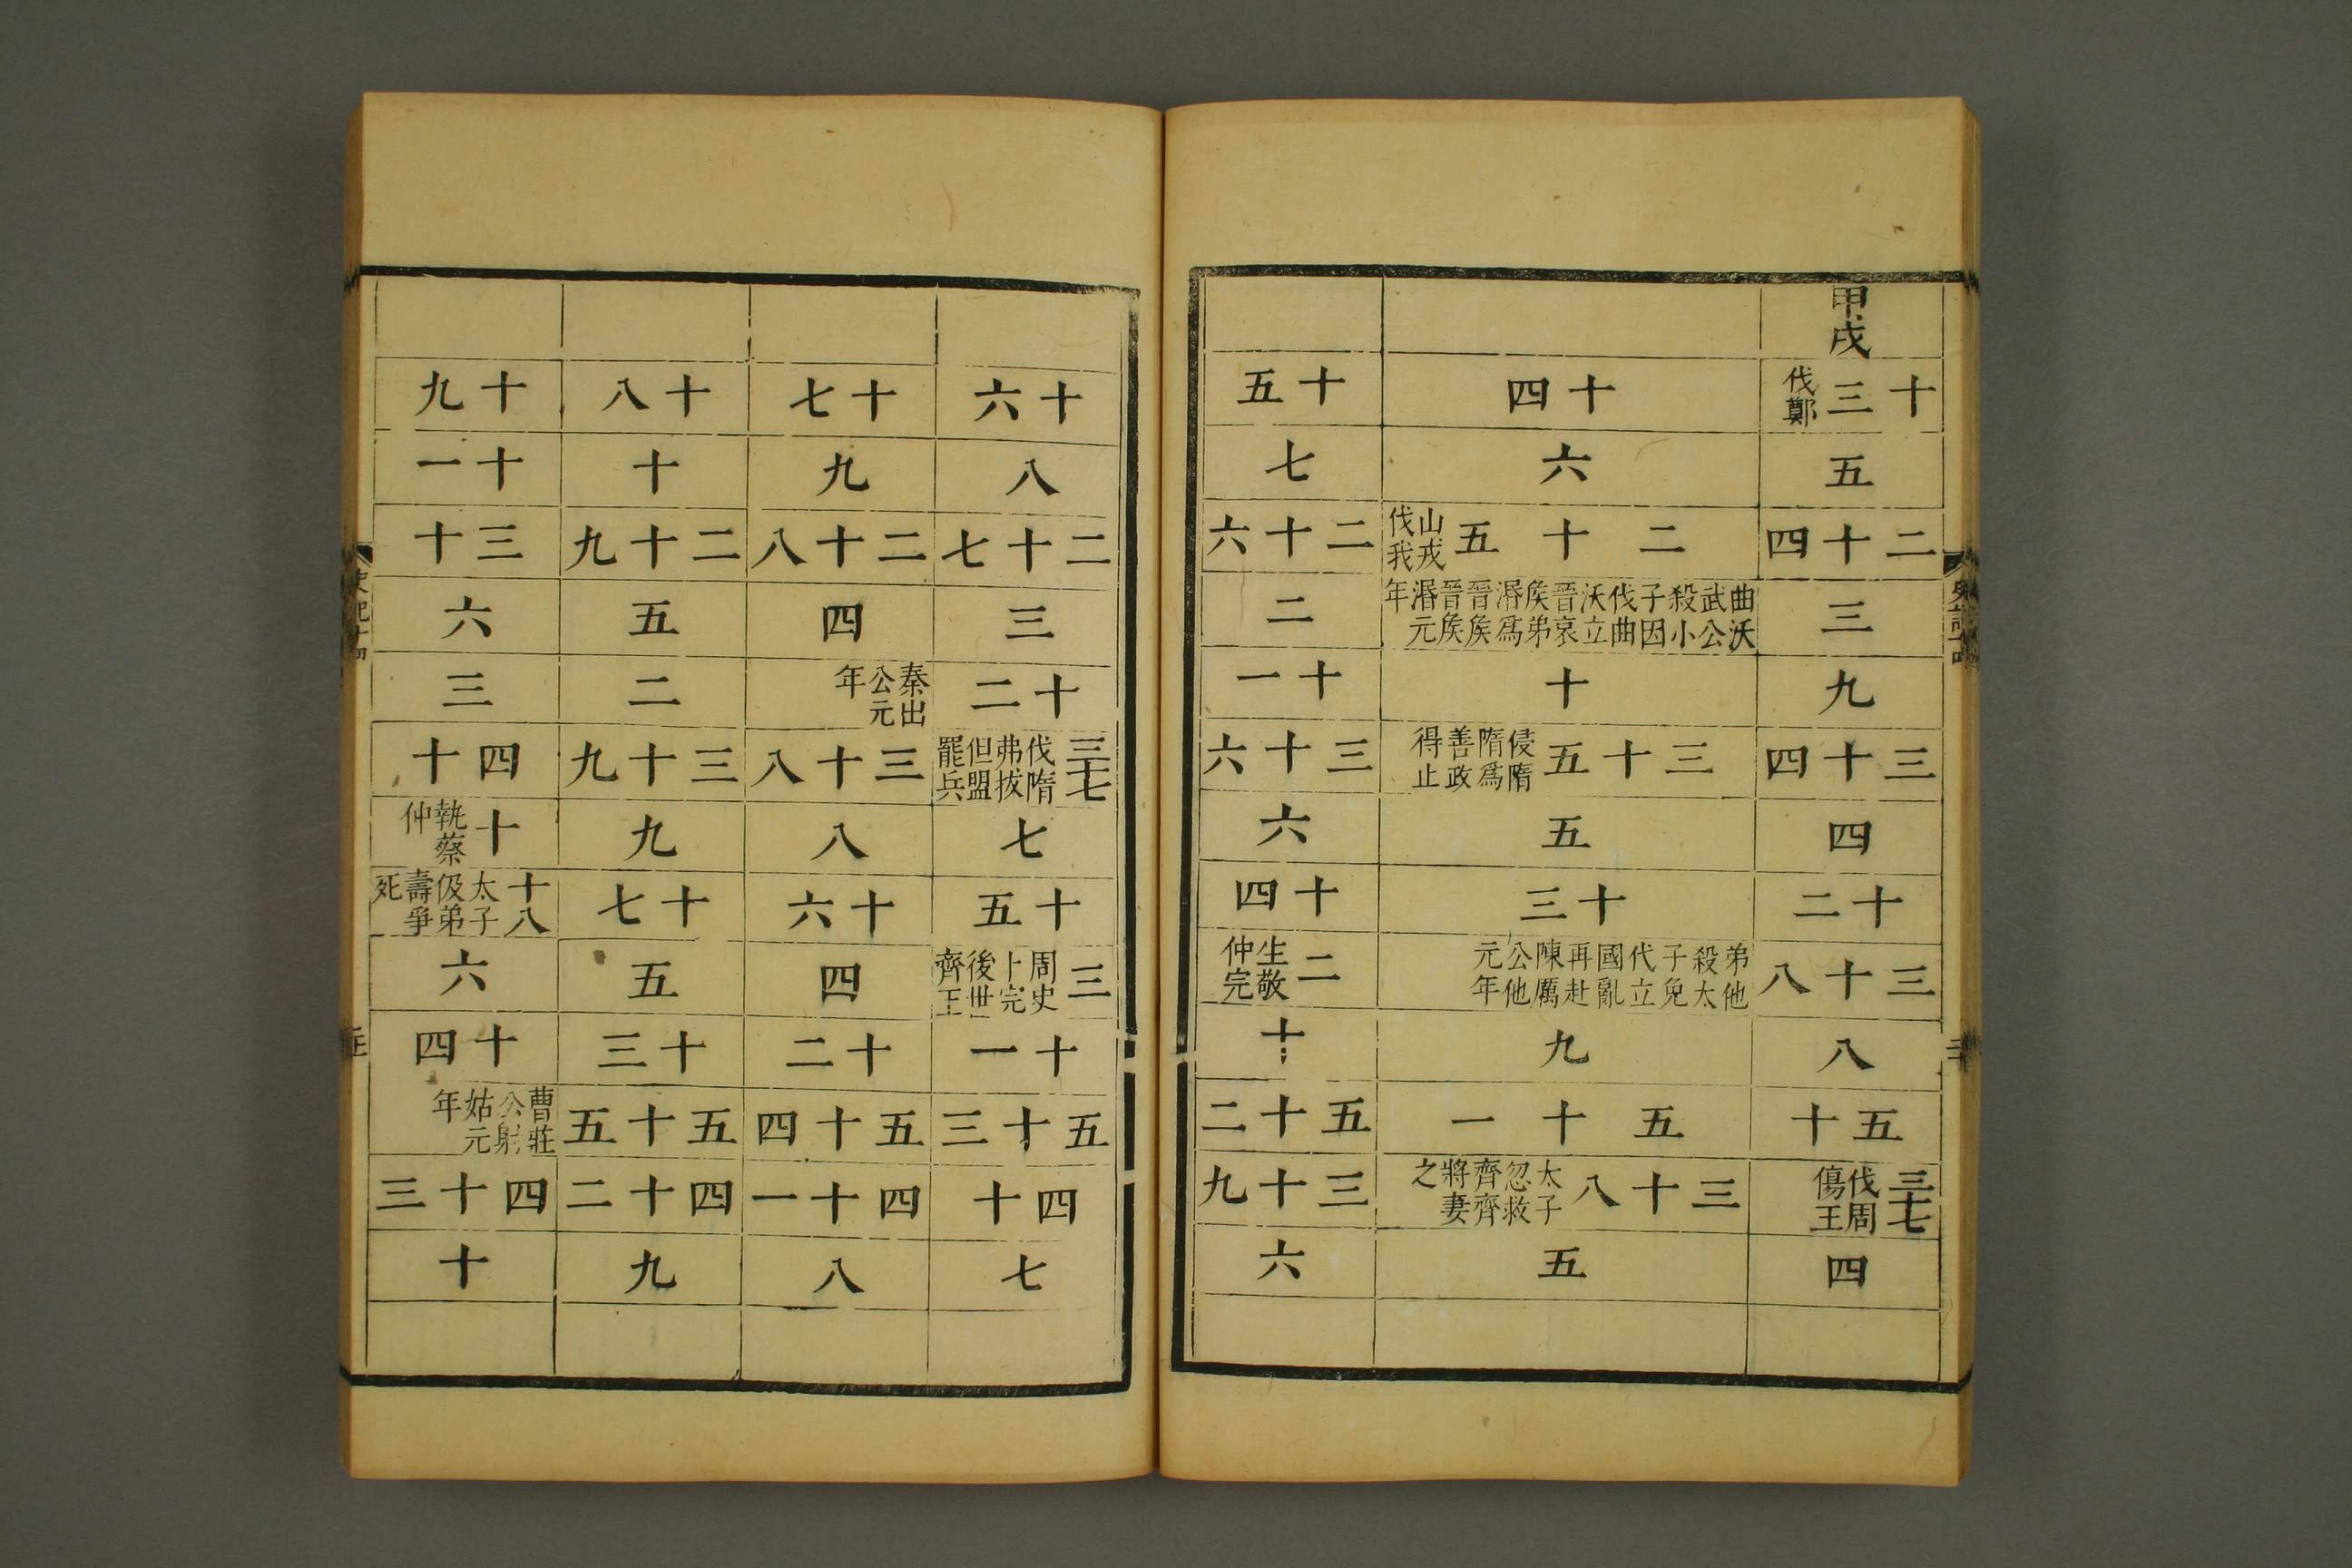 甲戌
十三伐鄭
五
二十四
三
九
三十四
四
十二
三十八
八
五十
三十七伐周傷王
四
十四
六
二十五山戎伐我
曲沃武公殺小子因伐曲沃立晉哀矦弟湣爲晉矦晉矦湣元年
十
三十五侵隋隋爲善政得止
五
十三
弟他殺太子免代立國亂再赴陳厲公他元年
九
五十一
三十八太子忽救齊齊將妻之
五
十五
七
二十六
二
十一
三十六
六
十四
二生敬仲完
十
五十二
三十九
六
十六
八
二十七
三
十二
三十七伐隋弗拔但盟罷兵
七
十五
三周史卜完後世齊王
十一
五十三
四十
七
十七
九
二十八
四
秦出公元年
三十八
八
十六
四
十二
五十四
四十一
八
十八
十
二十九
五
二
三十九
九
十七
五
十三
五十五
四十二
九
十九
十一
三十
六
三
四十
十執蔡仲
十八太子伋弟壽爭死
六
十四
曹莊公射姑元年
四十三
十
史記十四